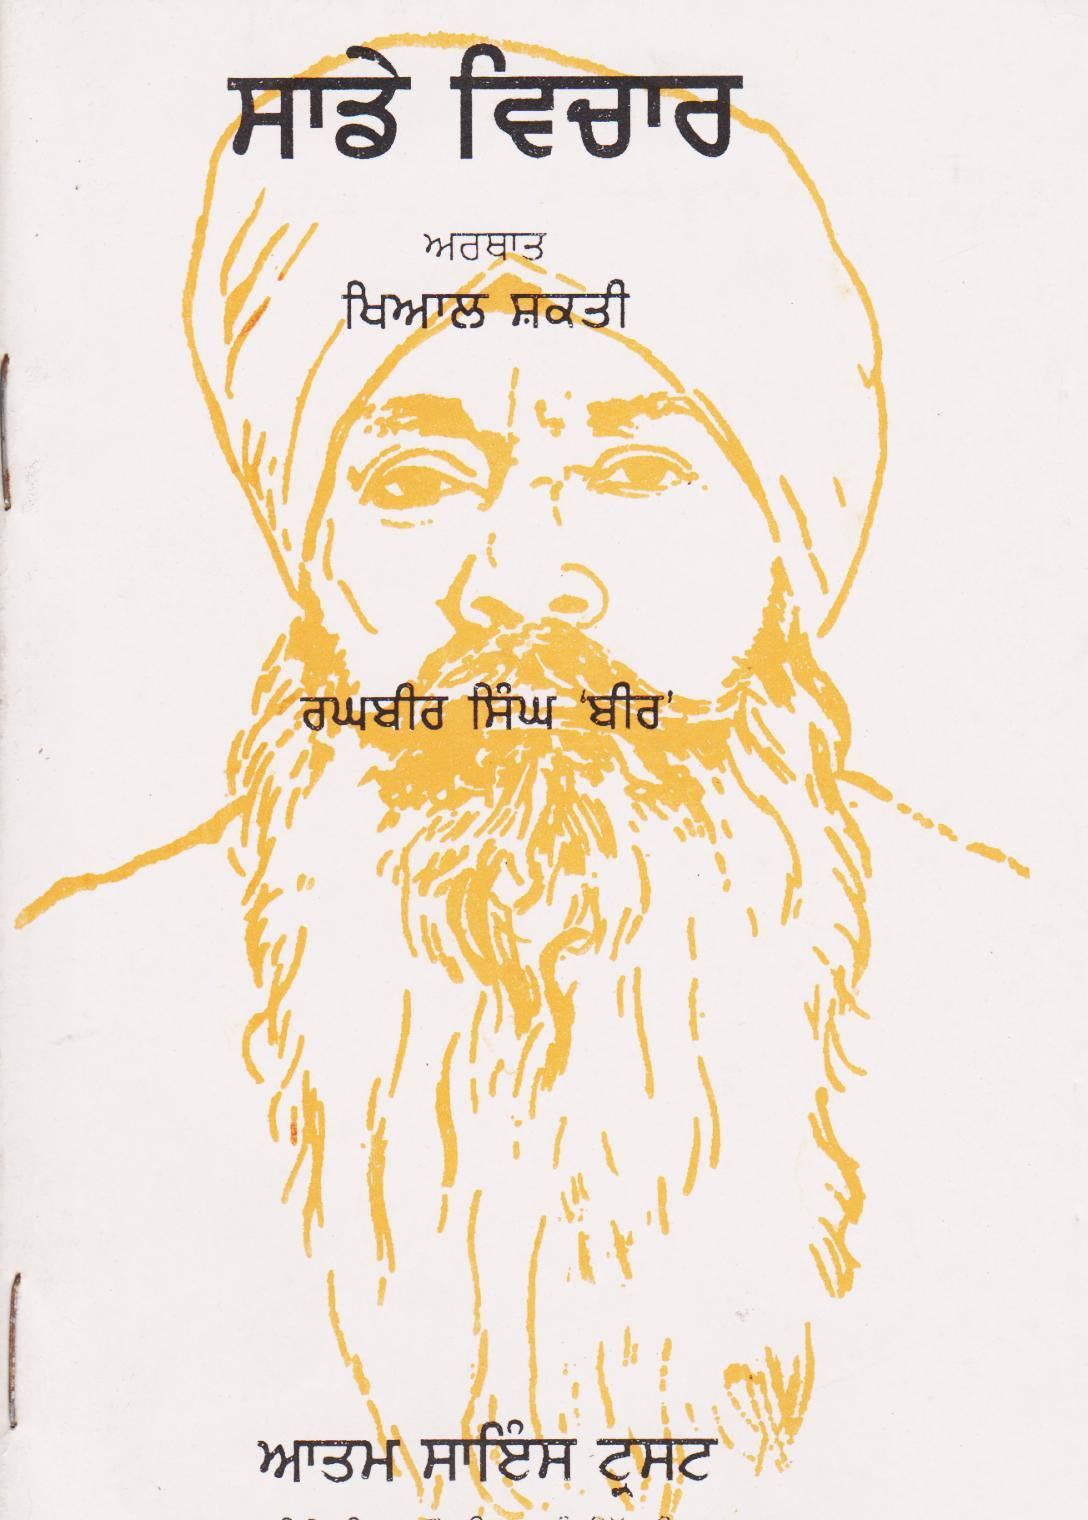 ਸਾਡੇ ਵਿਚਾਰ
ਅਰਥਾਤ
ਖਿਆਲ ਸ਼ਕਤੀ
ਰਘਬੀਰ ਸਿੰਘ ‘ਬੀਰ’
ਆਤਮ ਸਾਇੰਸ ਟ੍ਰਸਟ